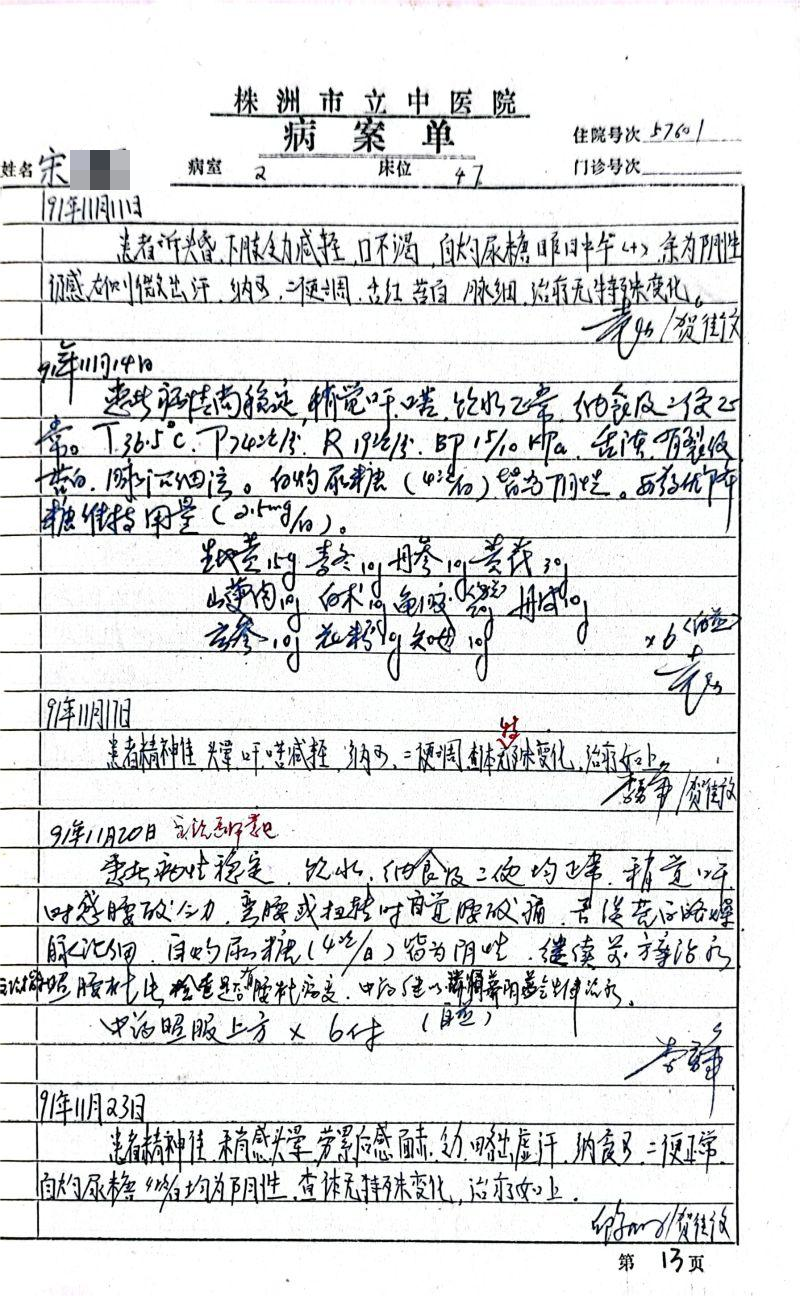 株洲市立中医院
病案单
住院号次 57601
姓名 宋 病室 2 床位 47 门诊号次
91年11月11日
患者诉头昏,下肢乏力减轻,口不渴,自灼尿糖昨日中午(+),余为阴性
仍感右侧微出汗,纳可,二便调,舌红苔白,脉细,治疗无特殊变化。
/贺佳纹
91年11月14日
患者病情尚稳定,稍觉口干、口苦,饮水正常,纳食及二便正
常。T 36.5℃ P 74次/分 R 19次/分 BP 15/10 KPa 舌淡有裂纹
苔白,脉沉细。自灼尿糖(4次/日)皆为阴性。西药优降
糖维持用量(2.5mg/日)。
生地黄15g 麦冬10g 丹参10g 黄芪30g
山萸肉10g 白术10g 龟胶 10g 丹皮10g
玄参10g 花粉 g 知母10g
×6
91年11月17日
患者精神佳,头晕、口干、口苦减轻,纳可,二便调,查体无特殊变化,治疗如上
/贺佳纹
91年11月20日 主治医师
患者病情稳定,饮水、纳食及二便均正常,稍觉口干,
时感腰酸乏力,弯腰或扭转时自觉腰酸痛,舌淡苔
脉沉细,自灼尿糖(4次/日)皆为阴性,继续前方案治疗
照腰椎片,检查是否有腰椎病变,中药继以 治疗。
中药照服上方×6付
91年11月23日
患者精神佳,稍感头晕,劳累后感 乏力,略出虚汗,纳食可,二便正常,
自灼尿糖4次/日均为阴性,查体无特殊变化,治疗如上。
/贺佳纹
第 13 页